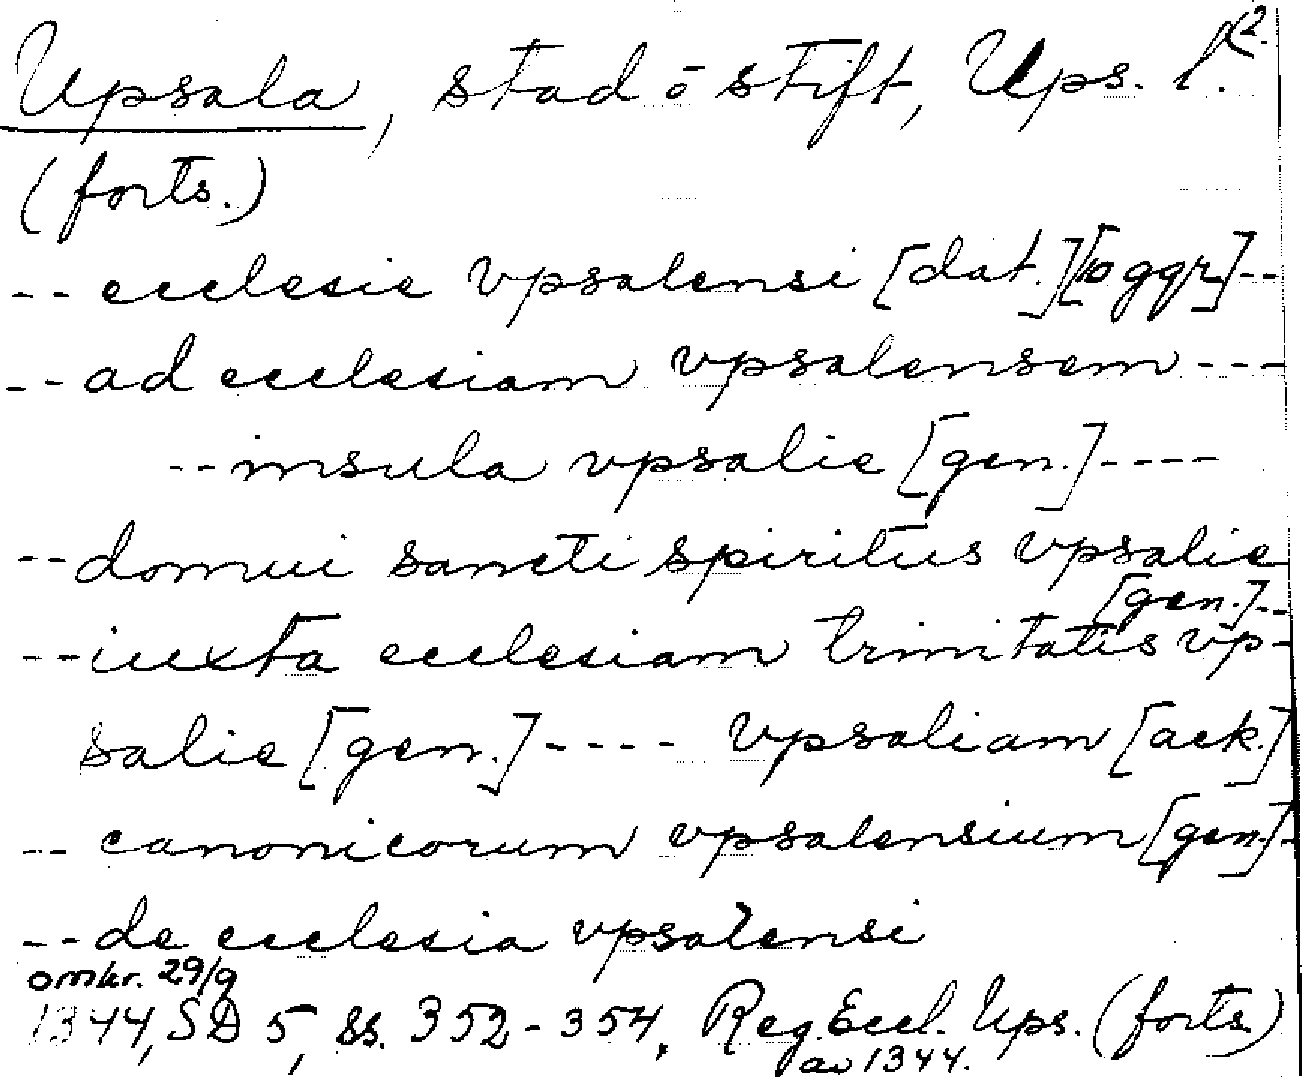 Upsala, stad o stift, Ups. l. (2.
(forts.)
-- ecclesie vpsalensi [dat.] [10 ggr] --
-- ad ecclesiam vpsalensem ---
-- insula vpsalie [gen.] ----
-- domui sancti spiritus vpsalie
[gen.] --
-- iuxta ecclesiam trinitatis vp-
salie [gen.] ---- vpsaliam [ack.]
-- canonicorum vpsalensium [gen.] -
-- de ecclesia vpsalensi
omkr. 29/9
1344, SD 5, ss. 352-354, Reg. Eccl. Ups. (forts)
av 1344.